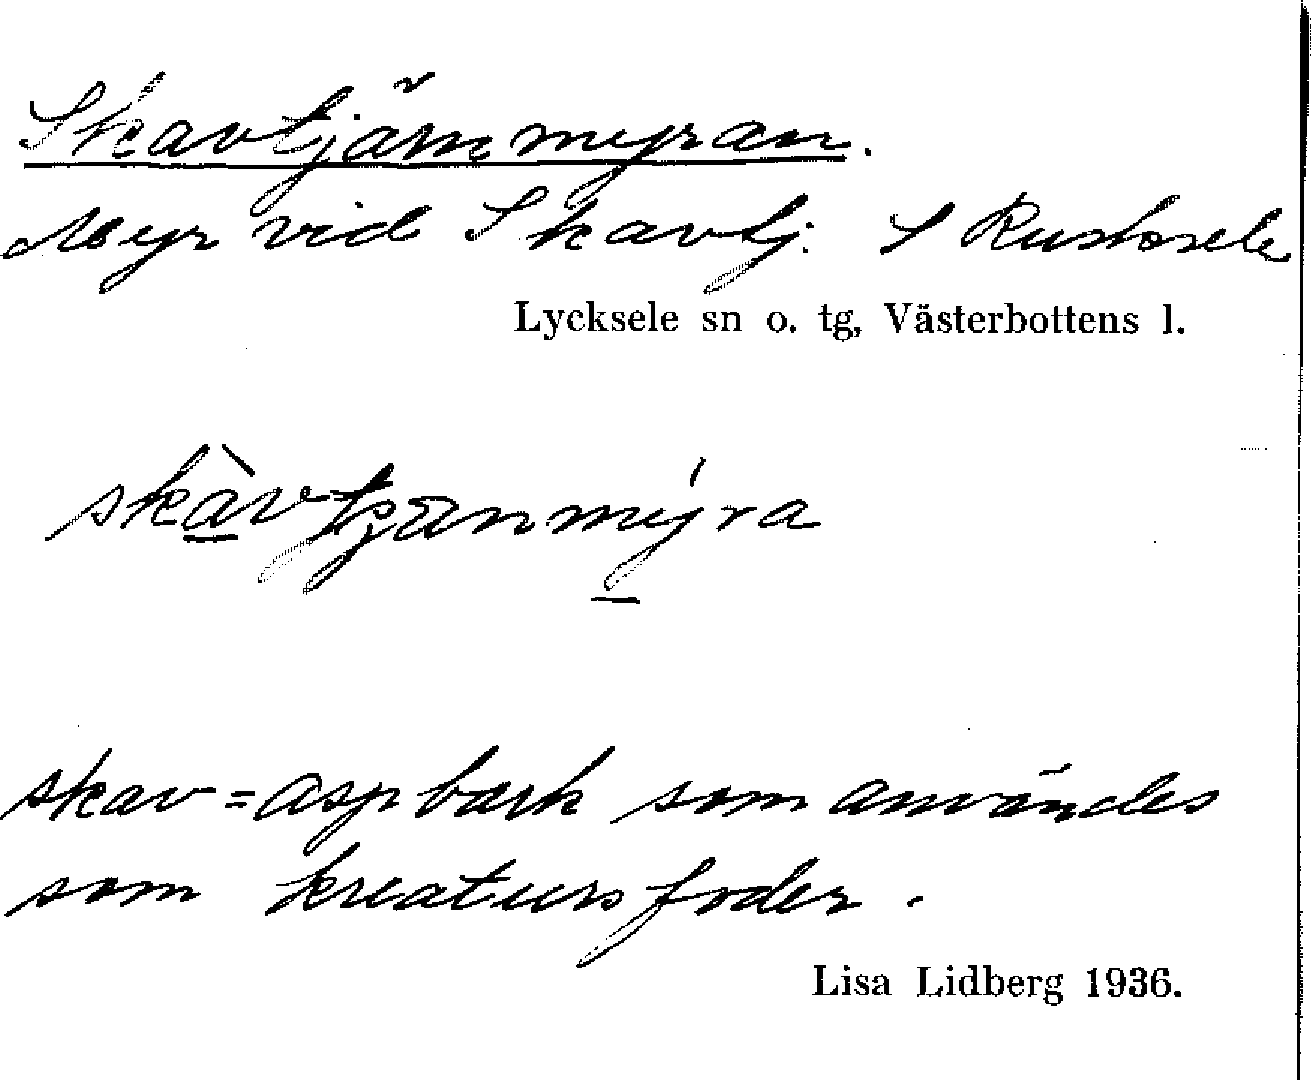 Skavtjärnmyran.
Myr vid Skavtj. S Rusksele
Lycksele sn o. tg, Västerbottens l.
skàvtjanmýra
skav = aspbark som användes
som kreatursfoder.
Lisa Lidberg 1936.